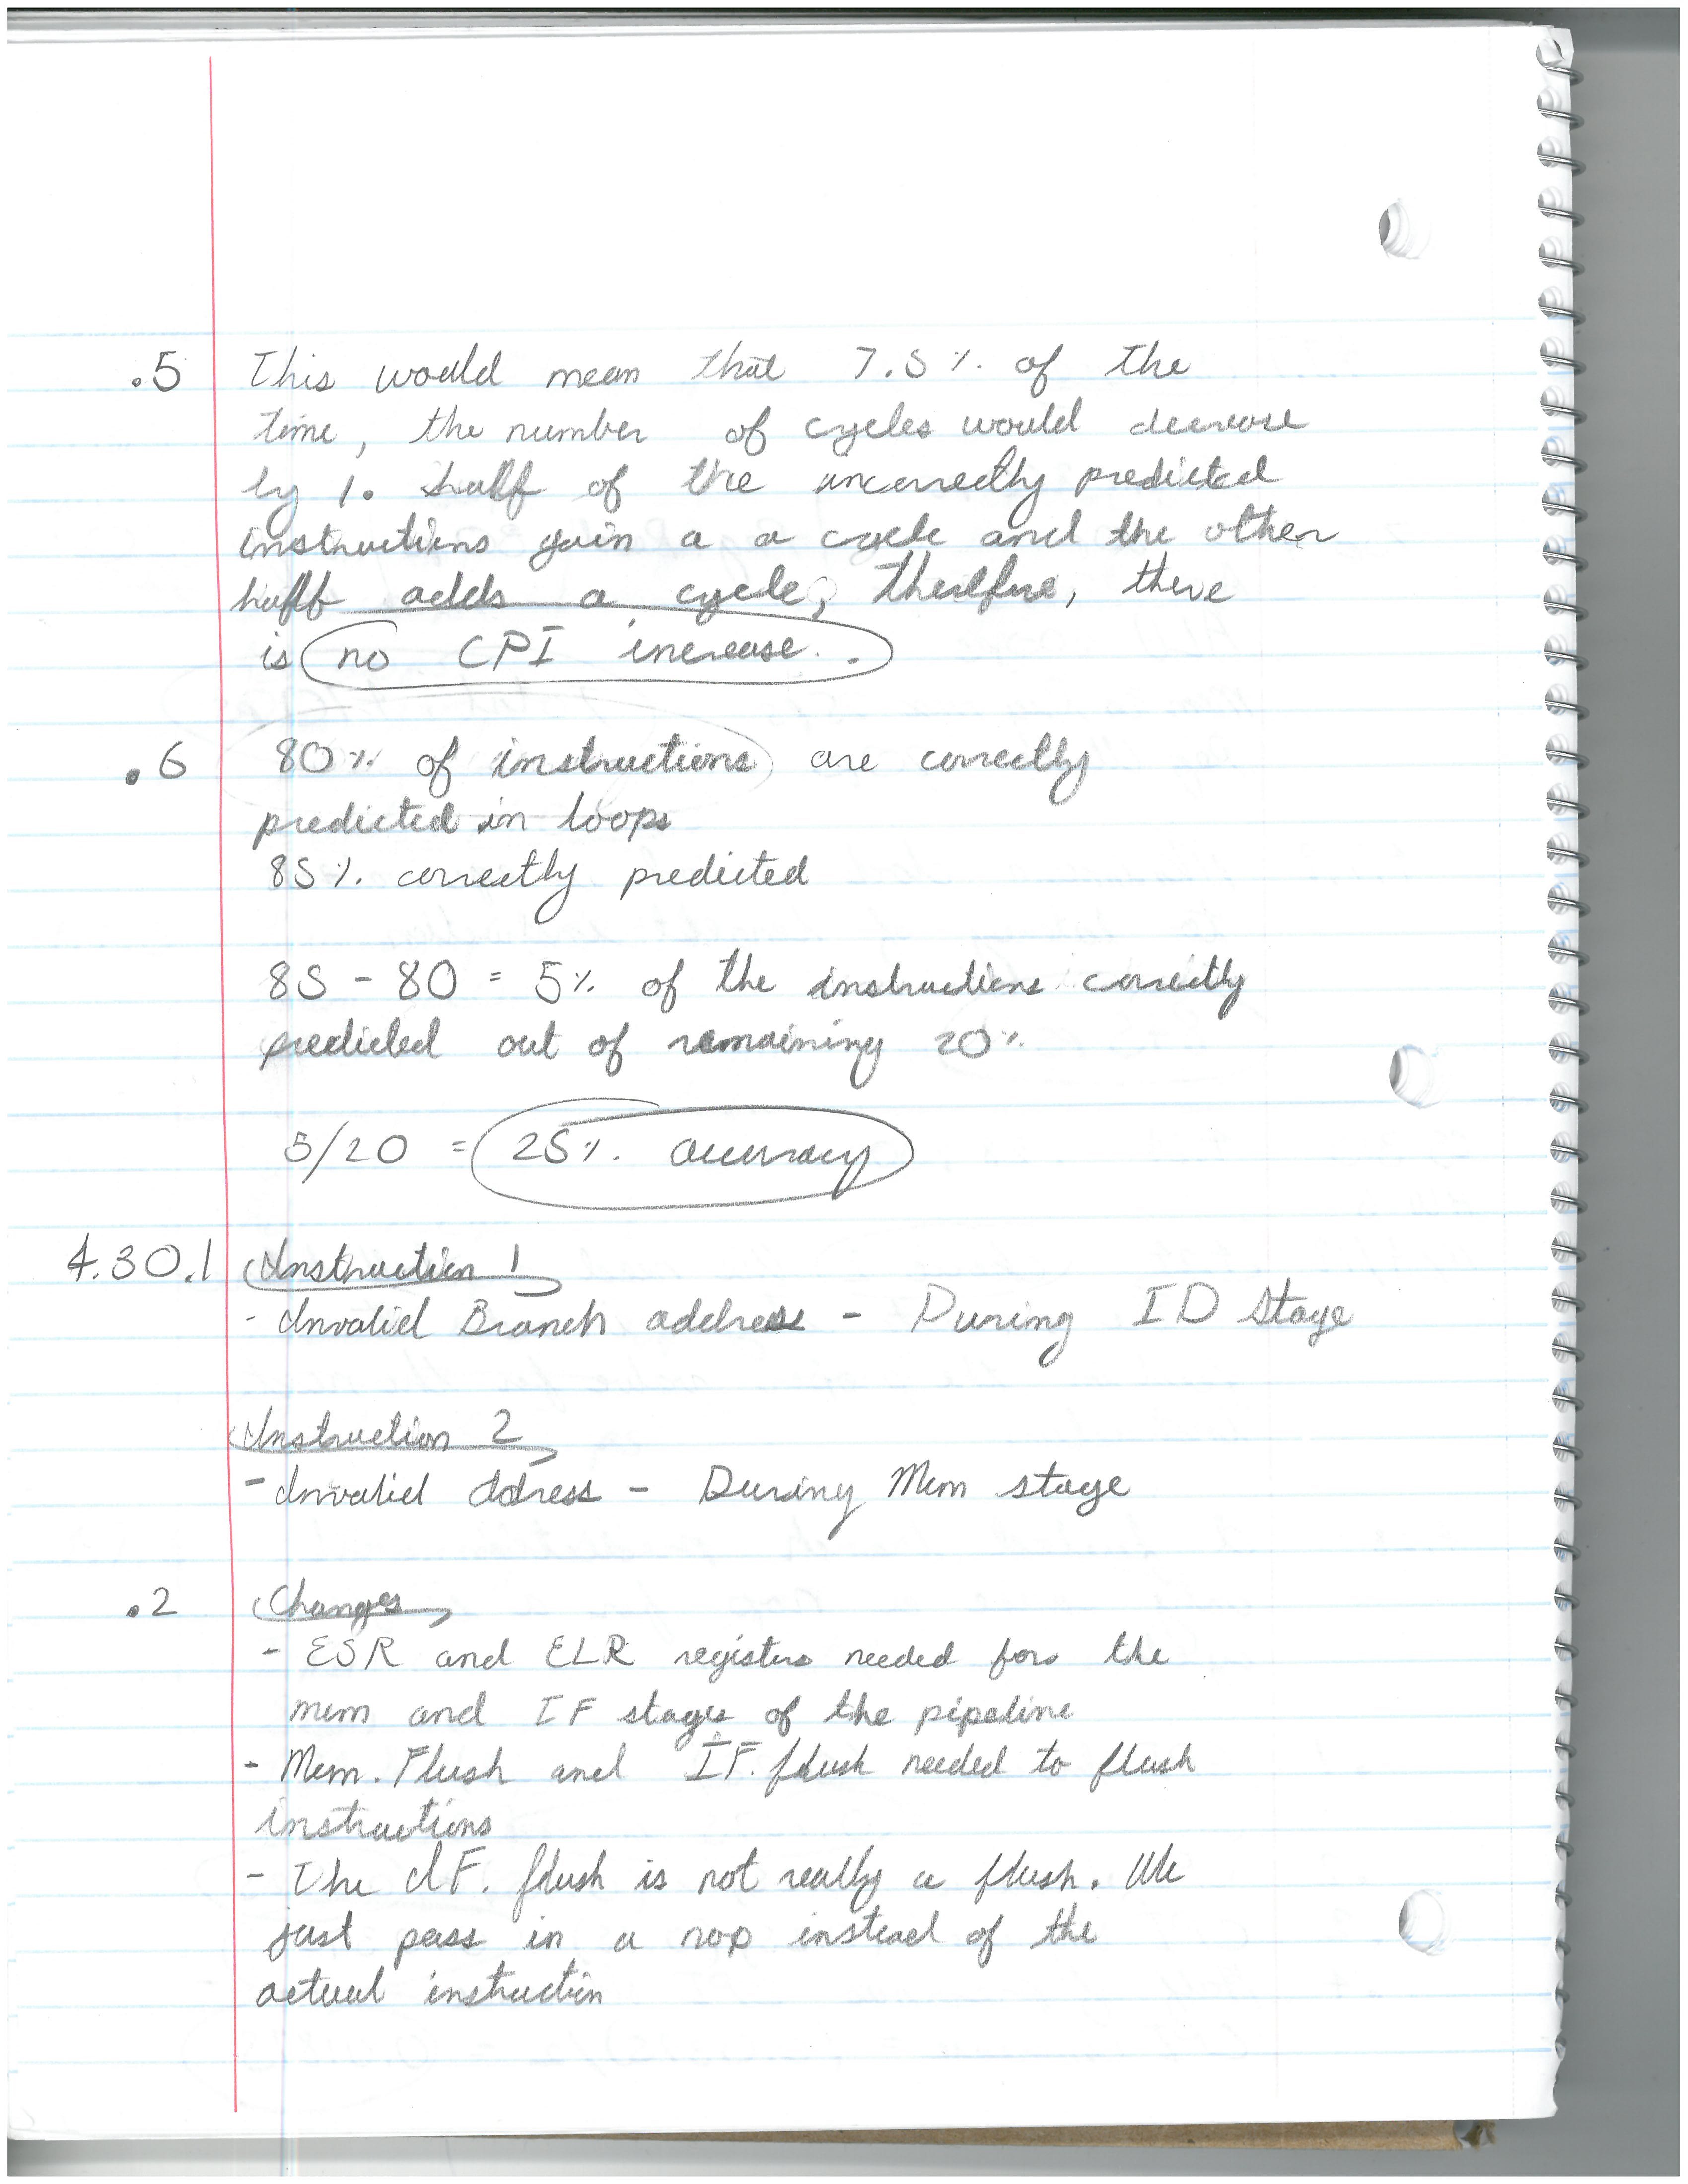 .5 This would mean that 7.5% of the
time, the number of cycles would decrease
by 1. half of the uncorrectly predicted
instructions gain a a cycle and the other
half adds a cycle, therefore, there
is no CPI increase.
.6 80% of instructions are correctly
predicted in loops
85% correctly predicted
85 - 80 = 5% of the instructions correctly
predicted out of remaining 20%
5/20 = 25% accuracy
4.30.1 Instruction 1
- Invalid Branch address - During ID stage
Instruction 2
- Invalid address - During Mem stage
.2 Changes
- ESR and ELR registers needed for the
mem and IF stages of the pipeline
- Mem. Flush and IF. flush needed to flush
instructions
- The IF. flush is not really a flush. We
just pass in a nop instead of the
actual instruction